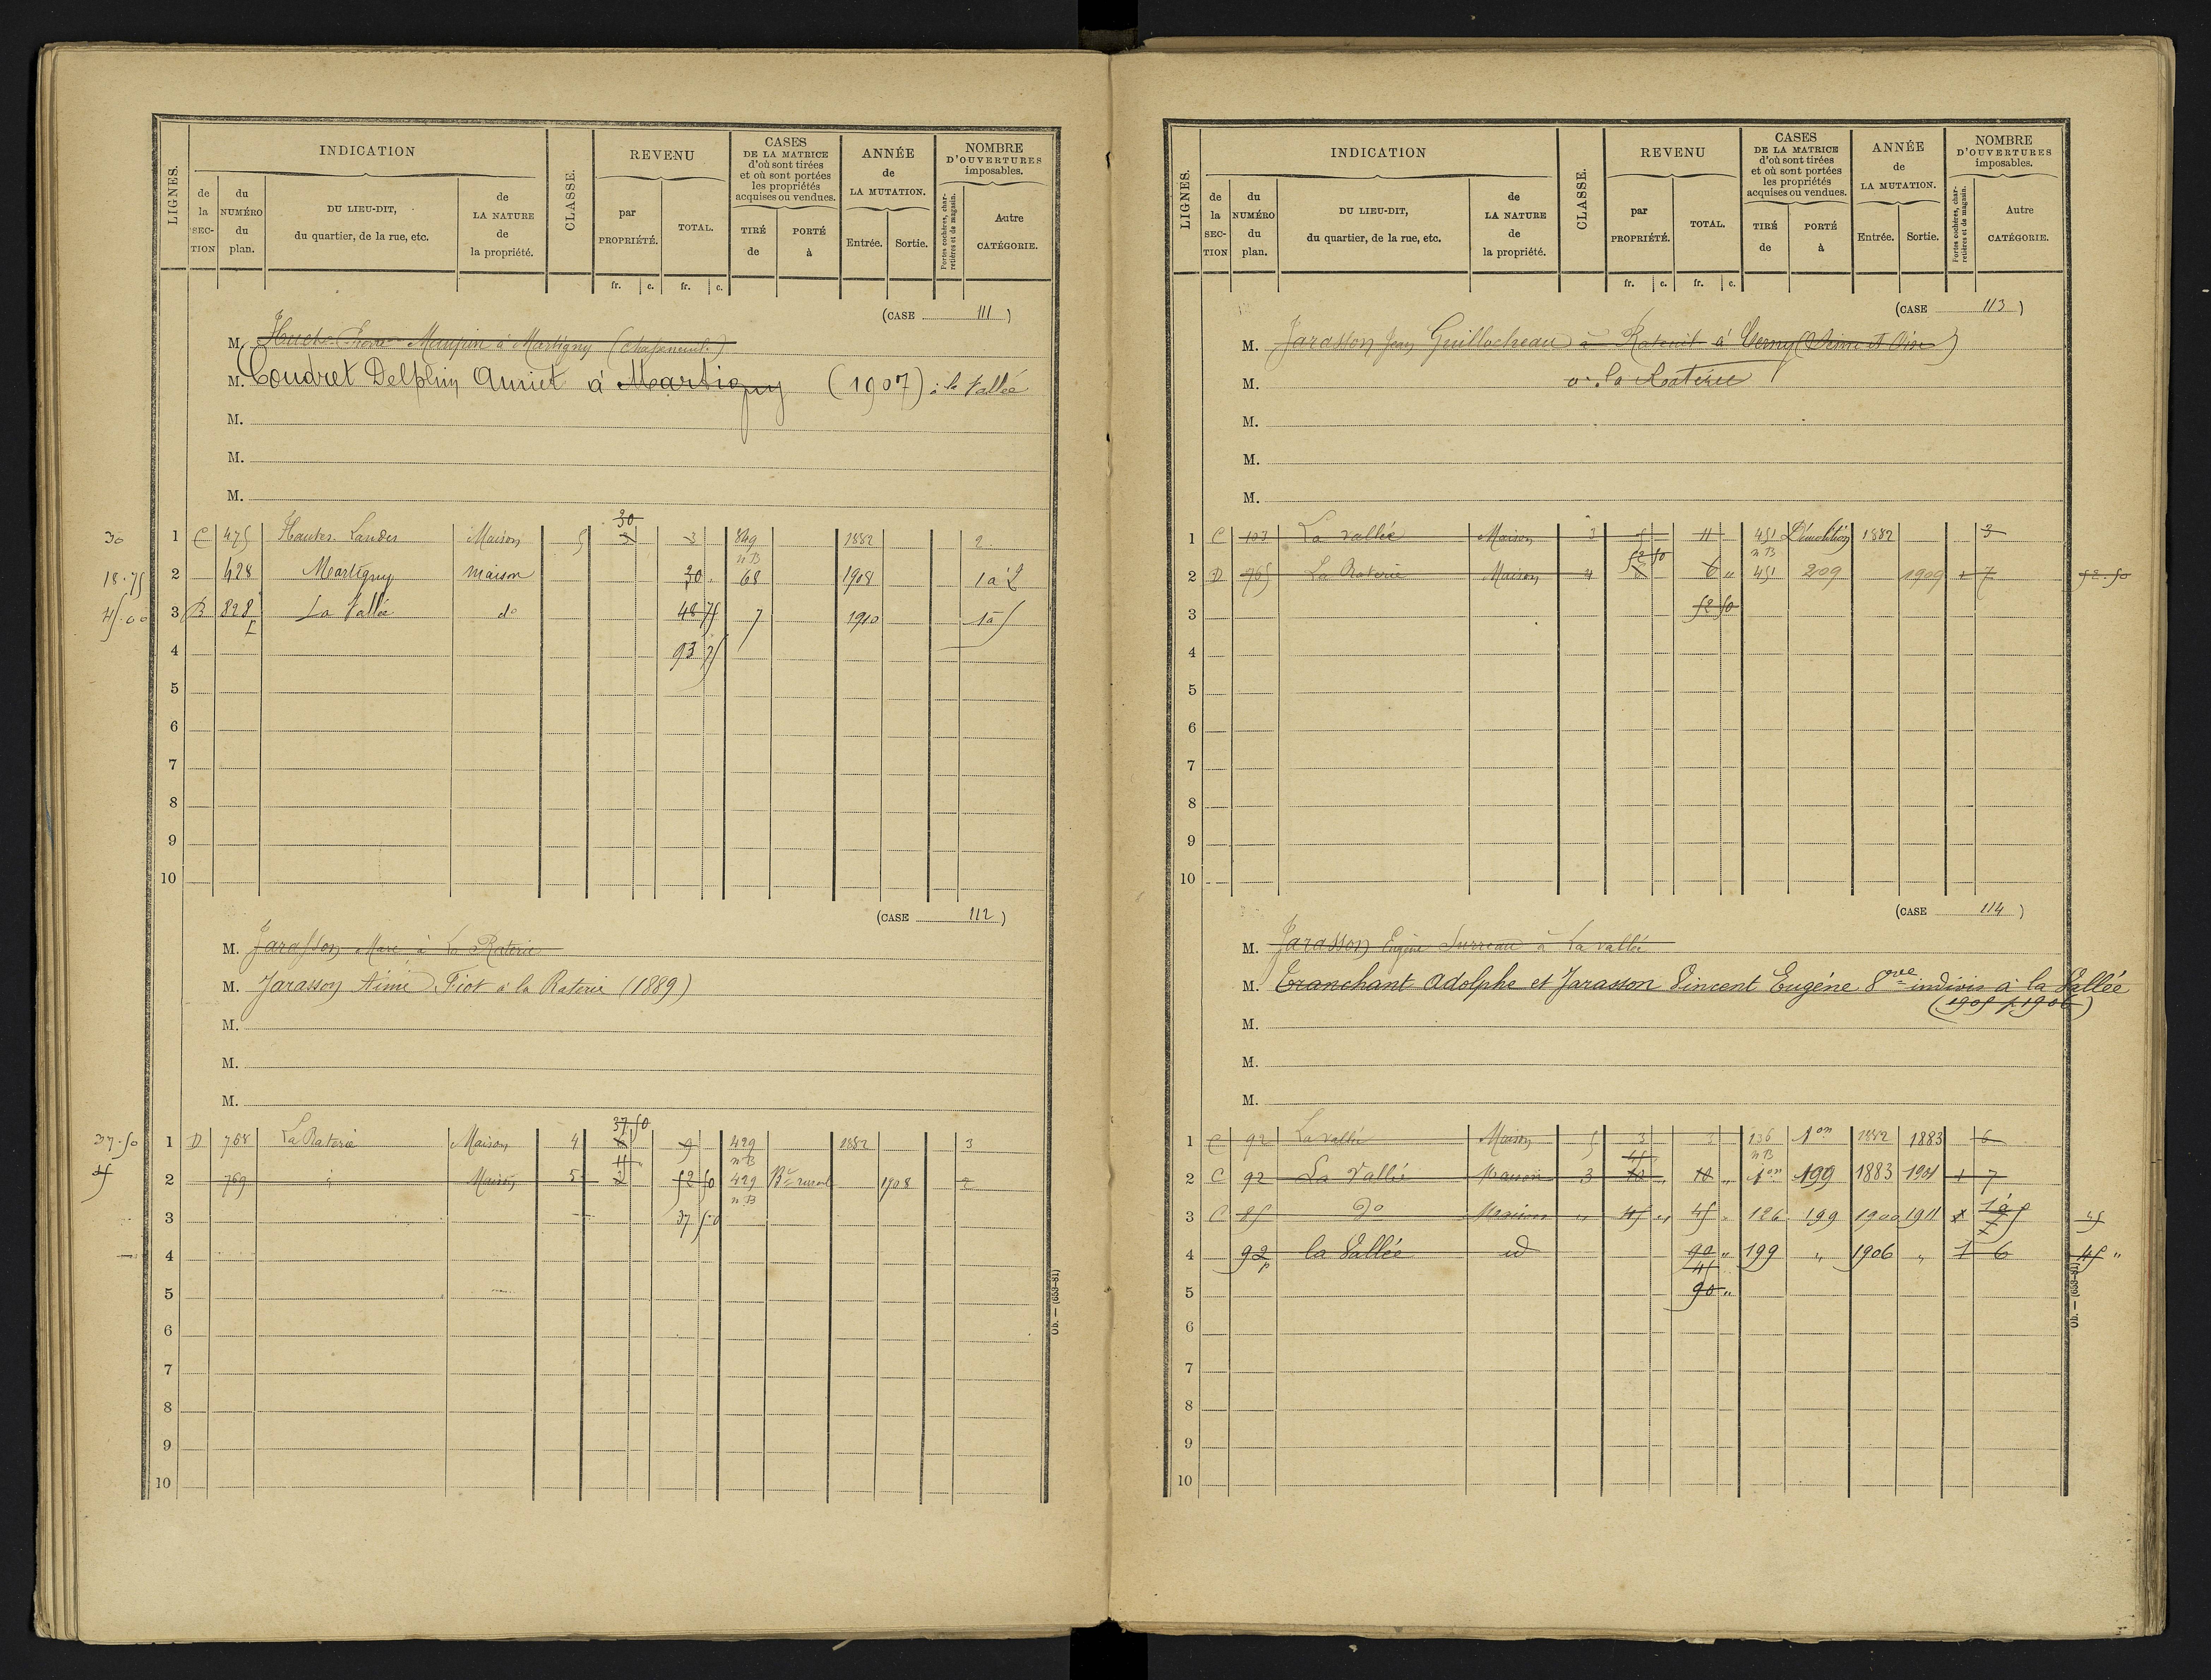 LIGNES. INDICATION CLASSE. REVENU CASES DE LA MATRICE d'où sont tirées et où sont portées les propriétés acquises ou vendues. ANNÉE de LA MUTATION. NOMBRE D'OUVERTURES imposables.
de la SECTION du NUMÉRO du plan. DU LIEU-DIT, du quartier, de la rue, etc. de LA NATURE de la propriété. par PROPRIÉTÉ. TOTAL. TIRÉ de PORTÉ à Entrée. Sortie. Portes cochères, charretières et de magasin. Autre CATÉGORIE.
fr. c. fr. c.
(CASE 111)
M. Maupin à Martigny
M. Coudret Delphin Auriet à Martigny (1907) à la Vallée
M.
M.
M.
30
30 1 C 475 Hautes Landes Maison 5 3 3 849 1882 2
n B
18.75 2 428 Martigny maison 30 68 1908 1 à 2
45.00 3 B 828 La Vallée do 48 75 7 1910 1 à 5
4 93 75
5
6
7
8
9
10
(CASE 112)
M. Jarasson Marc à La Raterie
M. Jarasson Aimé Fiot à la Raterie (1889)
M.
M.
M.
37.50
37.50 1 D 768 La Raterie Maison 4 6 9 429 1882 3
n B
45 2 769 Maison 5 3 52 50 429 Bt rural 1908 2
n B
3 37 50
4
5
6
7
8
9
10
Ob. — (659-81)
LIGNES. INDICATION CLASSE. REVENU CASES DE LA MATRICE d'où sont tirées et où sont portées les propriétés acquises ou vendues. ANNÉE de LA MUTATION. NOMBRE D'OUVERTURES imposables.
de la SECTION du NUMÉRO du plan. DU LIEU-DIT, du quartier, de la rue, etc. de LA NATURE de la propriété. par PROPRIÉTÉ. TOTAL. TIRÉ de PORTÉ à Entrée. Sortie. Portes cochères, charretières et de magasin. Autre CATÉGORIE.
fr. c. fr. c.
(CASE 113)
M. Jarasson Jean Guillocheau à à (Seine et Oise)
M. à la Raterie
M.
M.
M.
1 C 103 La Vallée Maison 3 5 11 451 Démolition 1882 3
52 50 n B
2 D 765 La Raterie Maison 4 6 6 „ 451 209 1909 1 7 52.50
3 52 50
4
5
6
7
8
9
10
(CASE 114)
M. Jarasson Eugène Surreau à La vallée
M. Tranchant Adolphe et Jarasson Vincent Eugène indivis à la Vallée
(1905 p. 1906)
M.
M.
M.
1 C 92 La vallée Maison 5 3 3 136 1on 1882 1883 6
45 n B
2 C 92 La Vallée Maison 3 10 „ 10 „ 1on 199 1883 1901 1 7
3 C 85 do Maison „ 45 „ 45 „ 126 199 1900 1911 1 à 5 45
4 92p la Vallée id 90 „ 199 „ 1906 „ 1 6 45 „
45
5 90 „
6
7
8
9
10
Ob. — (659-81)